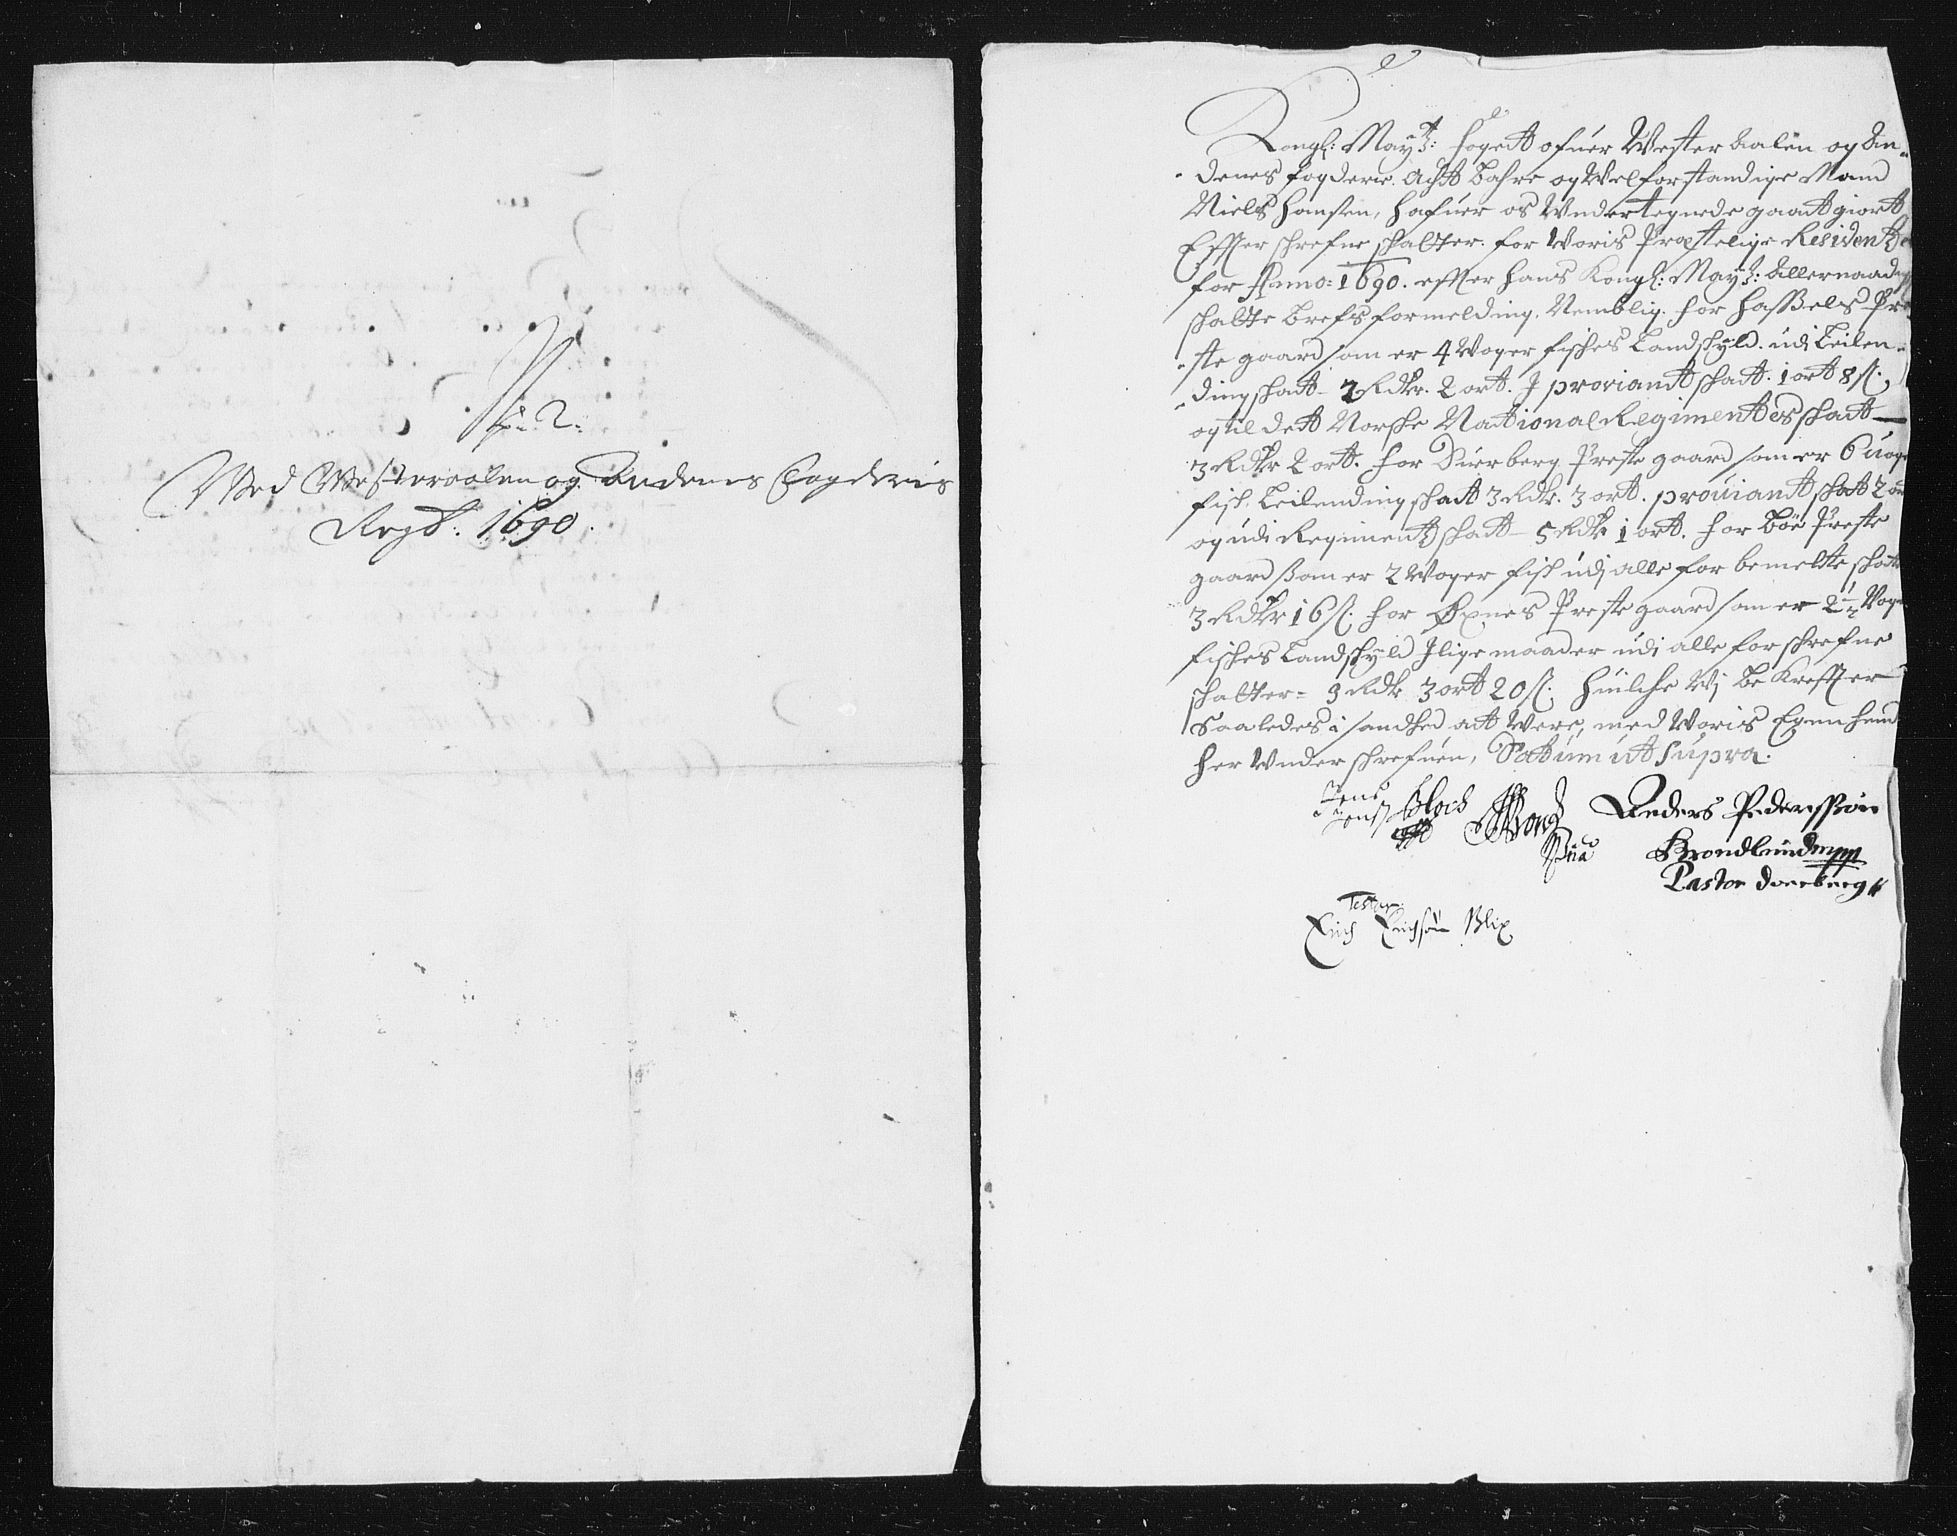 N: 2:
Ved Westeraalen og Andenes Fogderis
Regsk: 1690.
Kongl: Maytz: fogett ofuer Vester Aalen og An-
denes fogderie. Acht bahre og Velforstandige Mand
Niels Hansen, hafuer os Vndertegnede gaatgiort
Effter schrefne schatter. for Voris Præstelige Residentz
for Anno: 1690. effter hans Kongl: Maytz: Allernaadig
schatte brefs formelding. Nemblig. for Hassels Pre-
ste gaard som er 4 Voger fisches Landschyld. udj Leilen-
dingschatt- 2 Rdkr. 2 ort. J proviandt schatt. 1 ort 8 s.
og til dett Norske National Regimentes schatt
3 Rdkr 2 ort. for Duerberg Preste gaard som er 6 Uoge
fisk. Leilending schatt 3 Rdk. 3 ort. proviandt schat 2 ort
og udi Regimentz schatt- 5 Rdk 1 ort. for Böe Preste
gaard som er 2 Voger fisk udj alle for bemelte schatte
3 Rdkr 16 s. for Øxnes Preste gaard som er 2½ Voge
fisches Landschyld Jlige maader udi alle forschrefne
schatter- 3 Rdk 3 ort 20 s. Huilche Vj be Kreffter
Saaledes i sandhed att Vere, med Voris Egenhend
her Vnder schrefuen, Datum ut supra.
Jens Bloch
Anders Pedersøn
Brondlund mpp
Pastor Dverberg
Testor
Erich Erichsøn Blix